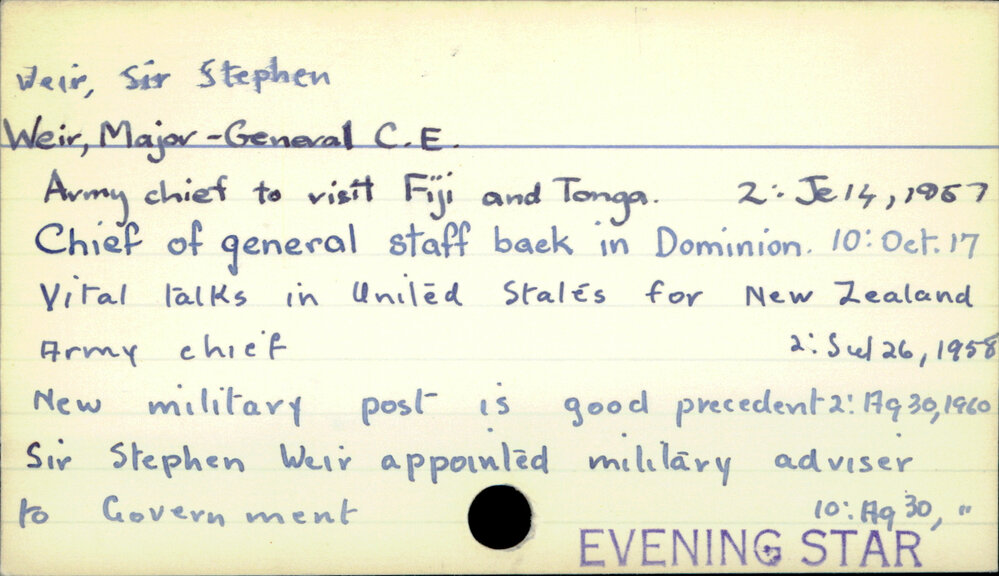 Weir, Sir Stephen
Weir, Major-General C.E.
Army chief to visit Fiji and Tonga. 2: Je 14, 1957
Chief of general staff back in Dominion. 10: Oct. 17
Vital talks in United States for New Zealand
Army chief 2: Jul 26, 1958
New military post is good precedent 2: Ag 30, 1960
Sir Stephen Weir appointed military adviser
to Government 10: Ag 30, "
EVENING STAR